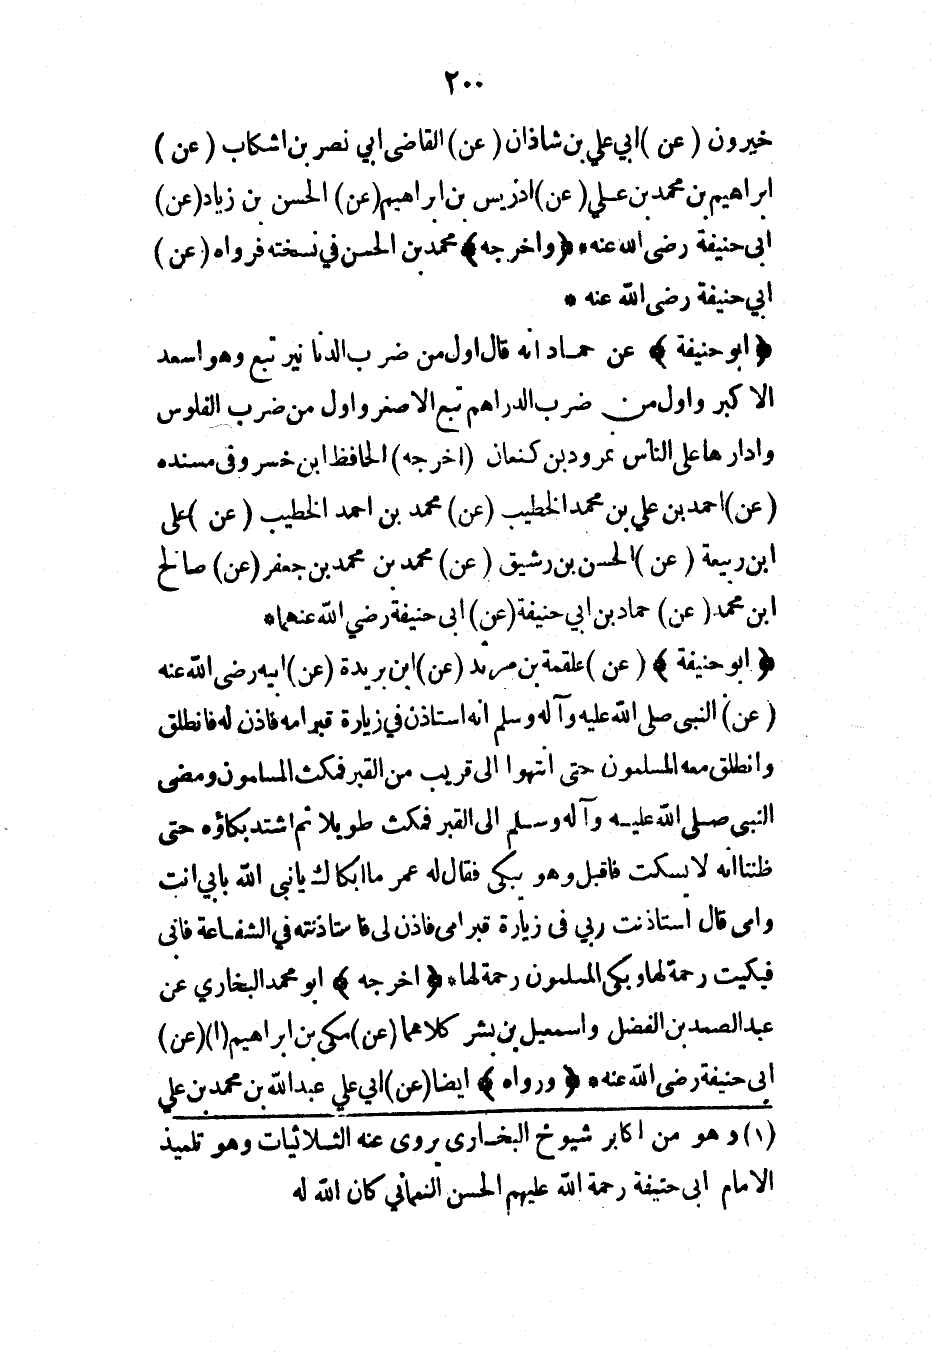 ٢٠٠
خيرون (عن) ابي علي بن شاذان (عن) القاضى ابي نصر بن اشكاب (عن)
ابراهيم بن محمد بن علي (عن) ادريس بن ابراهيم (عن) الحسن بن زياد (عن)
ابى حنيفة رضى الله عنه * ﴿واخرجه﴾ محمد بن الحسن في نسخته فرواه (عن)
ابي حنيفة رضى الله عنه *
﴿ابو حنيفة﴾ عن حماد انه قال اول من ضرب الدنانير تبع وهو اسعد
الاكبر واول من ضرب الدراهم تبع الاصغر واول من ضرب الفلوس
وادارها على الناس نمرود بن كنعان (اخرجه) الحافظ ابن خسرو فى مسنده
(عن) احمد بن علي بن محمد الخطيب (عن) محمد بن احمد الخطيب (عن) على
ابن ربيعة (عن) الحسن بن رشيق (عن) محمد بن محمد بن جعفر (عن) صالح
ابن محمد (عن) حماد بن ابي حنيفة (عن) ابى حنيفة رضي الله عنهما *
﴿ابو حنيفة﴾ (عن) علقمة بن مرثد (عن) ابن بريدة (عن) ابيه رضى الله عنه
(عن) النبى صلى الله عليه وآله وسلم انه استاذن في زيارة قبر امه فاذن له فانطلق
وانطلق معه المسلمون حتى انتهوا الى قريب من القبر فمكث المسلمون ومضى
النبى صلى الله عليه وآله وسلم الى القبر فمكث طويلا ثم اشتد بكاؤه حتى
ظننا انه لا يسكت فاقبل وهو يبكى فقال له عمر ما ابكاك يا نبى الله بابي انت
وامى قال استاذنت ربي فى زيارة قبر امى فاذن لى فاستاذنته في الشفاعة فابى
فبكيت رحمة لها وبكى المسلمون رحمة لها * ﴿اخرجه﴾ ابو محمد البخاري عن
عبد الصمد بن الفضل واسمعيل بن بشر كلاهما (عن) مكى بن ابراهيم (١) (عن)
ابى حنيفة رضى الله عنه * ﴿ورواه﴾ ايضا (عن) ابي علي عبد الله بن محمد بن علي
(١) وهو من اكابر شيوخ البخارى يروى عنه الثلاثيات وهو تلميذ
الامام ابى حنيفة رحمة الله عليهم الحسن النعماني كان الله له